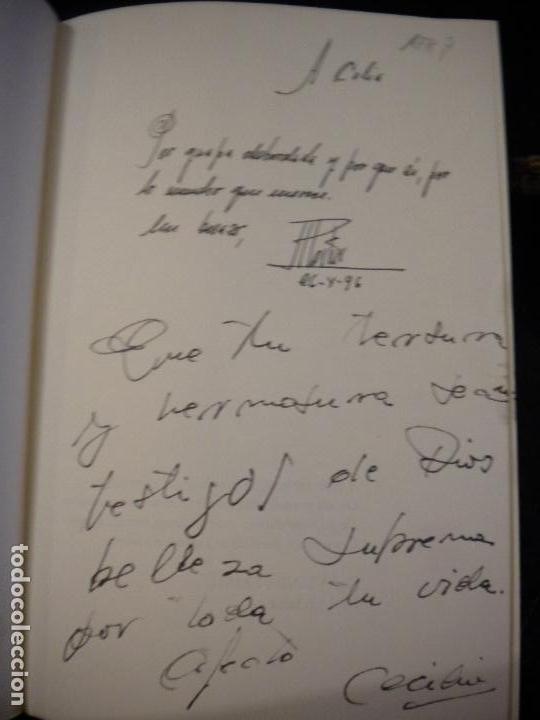 A Celia
Por guapa desbordada y por que sí, por
lo mucho que
Un beso,
26-V-96
Que tu ternura
y hermosura sean
testigos de Dios
belleza suprema
por toda tu vida.
Afecto
Cecilia
todocoleccion